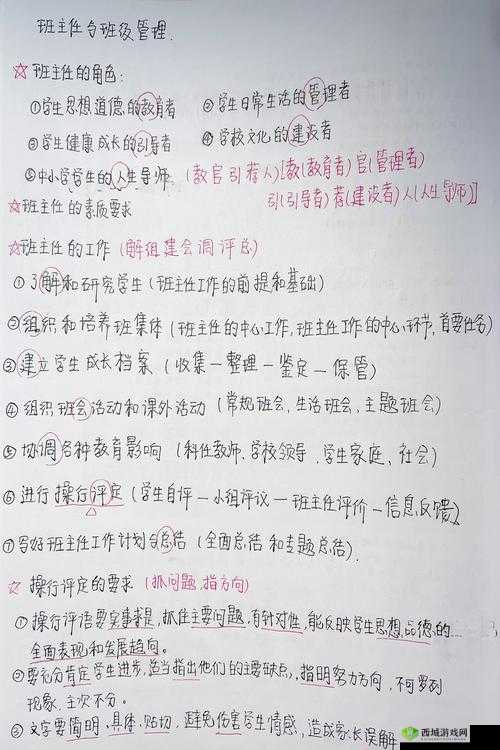 班主任与班级管理.
☆班主任的角色:
①学生思想道德的教育者 ②学生日常生活的管理者
③学生健康成长的引导者 ④学校文化的建设者
⑤中小学学生的人生导师 (教官引荐人)[教(教育者)官(管理者)
引(引导者)荐(建设者)人(人生导师)]
☆班主任的素质要求
☆班主任的工作 (解组建会调评总)
①了解和研究学生 (班主任工作的前提和基础)
②组织和培养班集体 (班主任的中心工作, 班主任工作的中心环节, 首要任务)
③建立学生成长档案 (收集—整理—鉴定—保管)
④组织班会活动和课外活动 (常规班会, 生活班会, 主题班会)
⑤协调各种教育影响 (科任教师、学校领导、学生家庭、社会)
⑥进行操行评定 (学生自评—小组评议—班主任评价—信息反馈)
⑦写好班主任工作计划与总结 (全面总结和专题总结).
☆操行评定的要求 (抓问题, 指方向)
①操行评语要实事求是, 抓住主要问题, 有针对性, 能反映学生思想品德的
全面表现和发展趋向。
②要充分肯定学生进步, 适当指出他们的主要缺点, 指明努力方向, 不可罗列
现象, 主次不分。
③文字要简明、具体、贴切, 避免伤害学生情感, 造成家长误解
西城游戏网